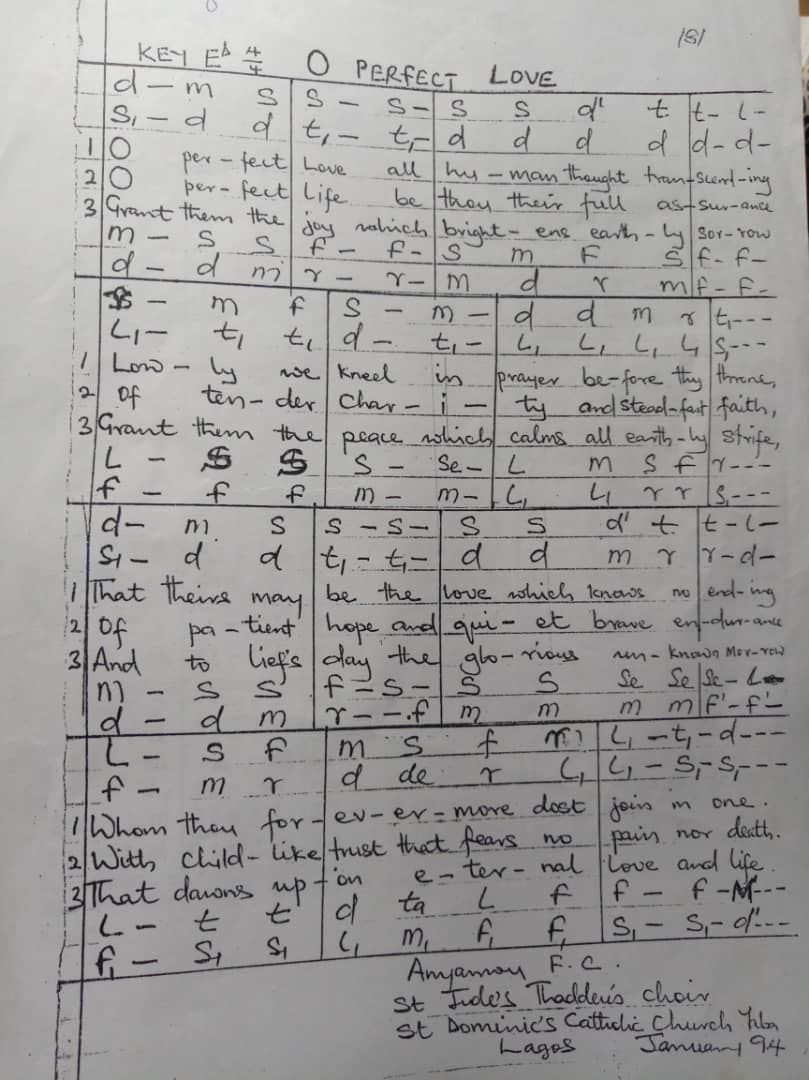 181
KEY Eb 4/4 O PERFECT LOVE
d — m s | s — s — | s s d' t | t — l —
s, — d d | t, — t, — | d d d d | d — d —
1 O per - fect | Love all | hu - man thought tran - scend - ing
2 O per - fect | Life be | thou their full as - sur - ance
3 Grant them the | joy which | bright - ens earth - ly | sor - row
m — s s | f — f — | s m f s | f — f —
d — d m | r — r — | m d r m | f — f —
s — m f | s — m — | d d m r | t, - - -
l, — t, t, | d — t, — | l, l, l, l, | s, - - -
1 Low - ly we | kneel in | prayer be - fore thy | throne,
2 Of ten - der | Char - i - | ty and stead - fast | faith,
3 Grant them the | peace which | calms all earth - ly | strife,
L — s s | s — se — | L m s f | r - - -
f — f f | m — m — | l, l, r r | s, - - -
d — m s | s — s — | s s d' t | t — l —
s, — d d | t, — t, — | d d m r | r — d —
1 That theirs may | be the | love which knows no | end - ing
2 Of pa - tient | hope and | qui - et brave en - dur - ance
3 And to lief's | day the | glo - rious un - known Mor - row
m — s s | f — s — | s s se se | se — L —
d — d m | r — — . f | m m m m | f' — f' —
L — s f | m s f m | l, — t, — d - - -
f — m r | d de r l, | l, — s, — s, - - -
1 Whom thou for - | ev - er - more dost | join in one.
2 With child - like | trust that fears no | pain nor death.
3 That dawns up - | on e - ter - nal | love and life.
L — t t | d ta L f | f — f — M - - -
f, — s, s, | l, m, f, f, | s, — s, — d' - - -
Anyamson F.C.
St Jude's Thaddeus choir
St Dominic's Catholic Church Yaba
Lagos January 94